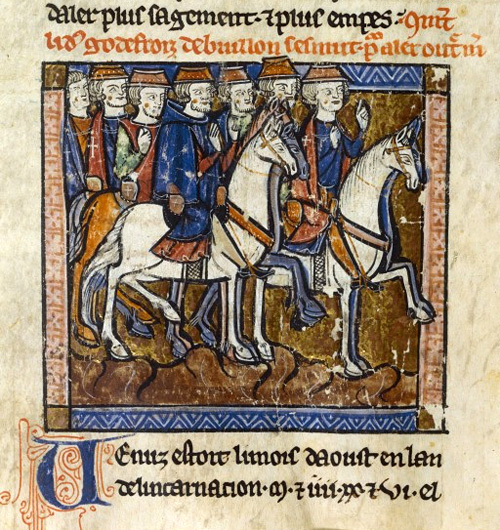 daler plus sagement ⁊ plus empes. Quāt
li dꝰ godefroiz de buillon sesmut. p̄ aler outͬ m̄
Venuz estoit li mois daoust en lan
de lincarnacion. M. ⁊ iiii. xx ⁊ Vi. el